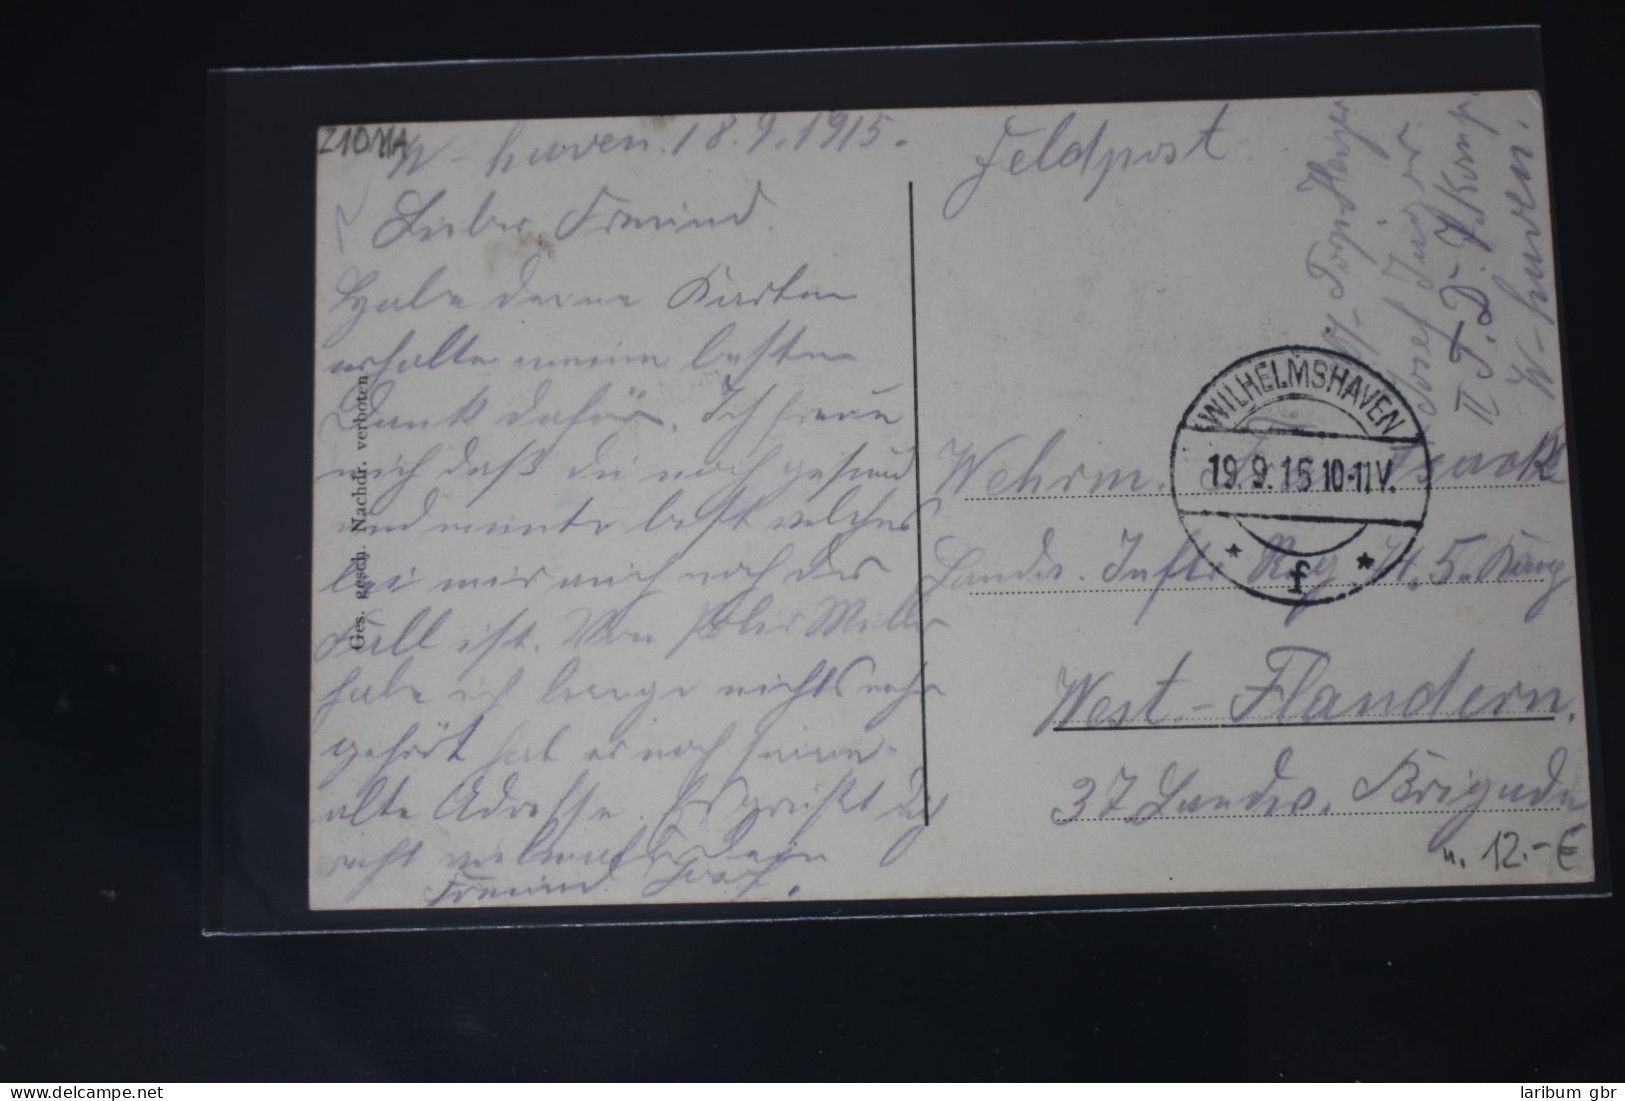 210MA
W-haven. 18.9.1915.
Lieber Freund.
Habe deine Karten
erhalte meinen besten
Dank dafür. Ich freue
mich daß du noch gesund
und munter bist welches
bei mir auch noch der
Fall ist. Von Miller
habe ich lange nichts mehr
gehört hat er noch seine
alte Adresse. Es grüßt dich
recht vielmals Dein
Freund Josef.
Ges. gesch. Nachdr. verboten.
Feldpost
Josef
II T. D. 7. Komp.
W-haven.
WILHELMSHAVEN
19.9.15 10-11V.
* f *
Wehrm.
Landw. Inftr. Reg. 5. Komp
West-Flandern.
37 Landw. Brigade
n. 12.-€
delcampe.net
laribum gbr